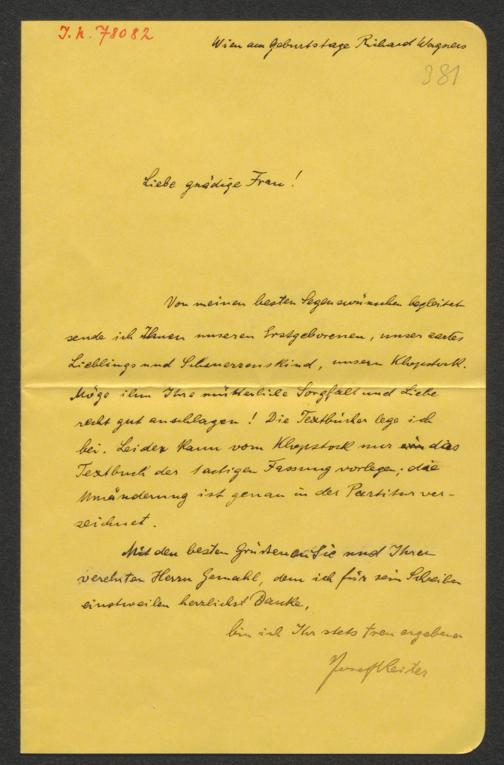 J.N. 78082
Wien am Geburtstage Richard Wagners
381
Liebe gnädige Frau!
Von meinen besten Segenswünschen begleitet
sende ich Ihnen unseren Erstgeborenen, unser zartes
Lieblings und Schmerzenskind, unsern Klopstock.
Möge ihm Ihre mütterliche Sorgfalt und Liebe
recht gut anschlagen! Die Textbücher lege ich
bei. Leider kann vom Klopstock nur das
Textbuch der 1actigen Fassung vorlegen; die
Umänderung ist genau in der Partitur ver-
zeichnet.
Mit den besten Grüssen an Sie und Ihren
verehrten Herrn Gemahl, dem ich für sein Schreiben
einstweilen herzlichst Danke,
bin ich Ihr stets treu ergebener
Josef Reiter